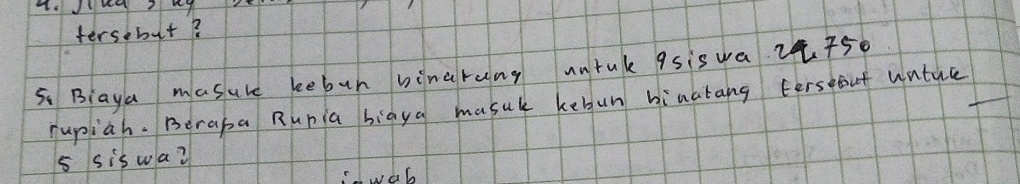 tersebut?
5. Biaya masuk kebun binatang untuk 9 siswa 24.750
rupiah. Berapa Rupia biaya masuk kebun binatang tersebut untuk
5 siswa?